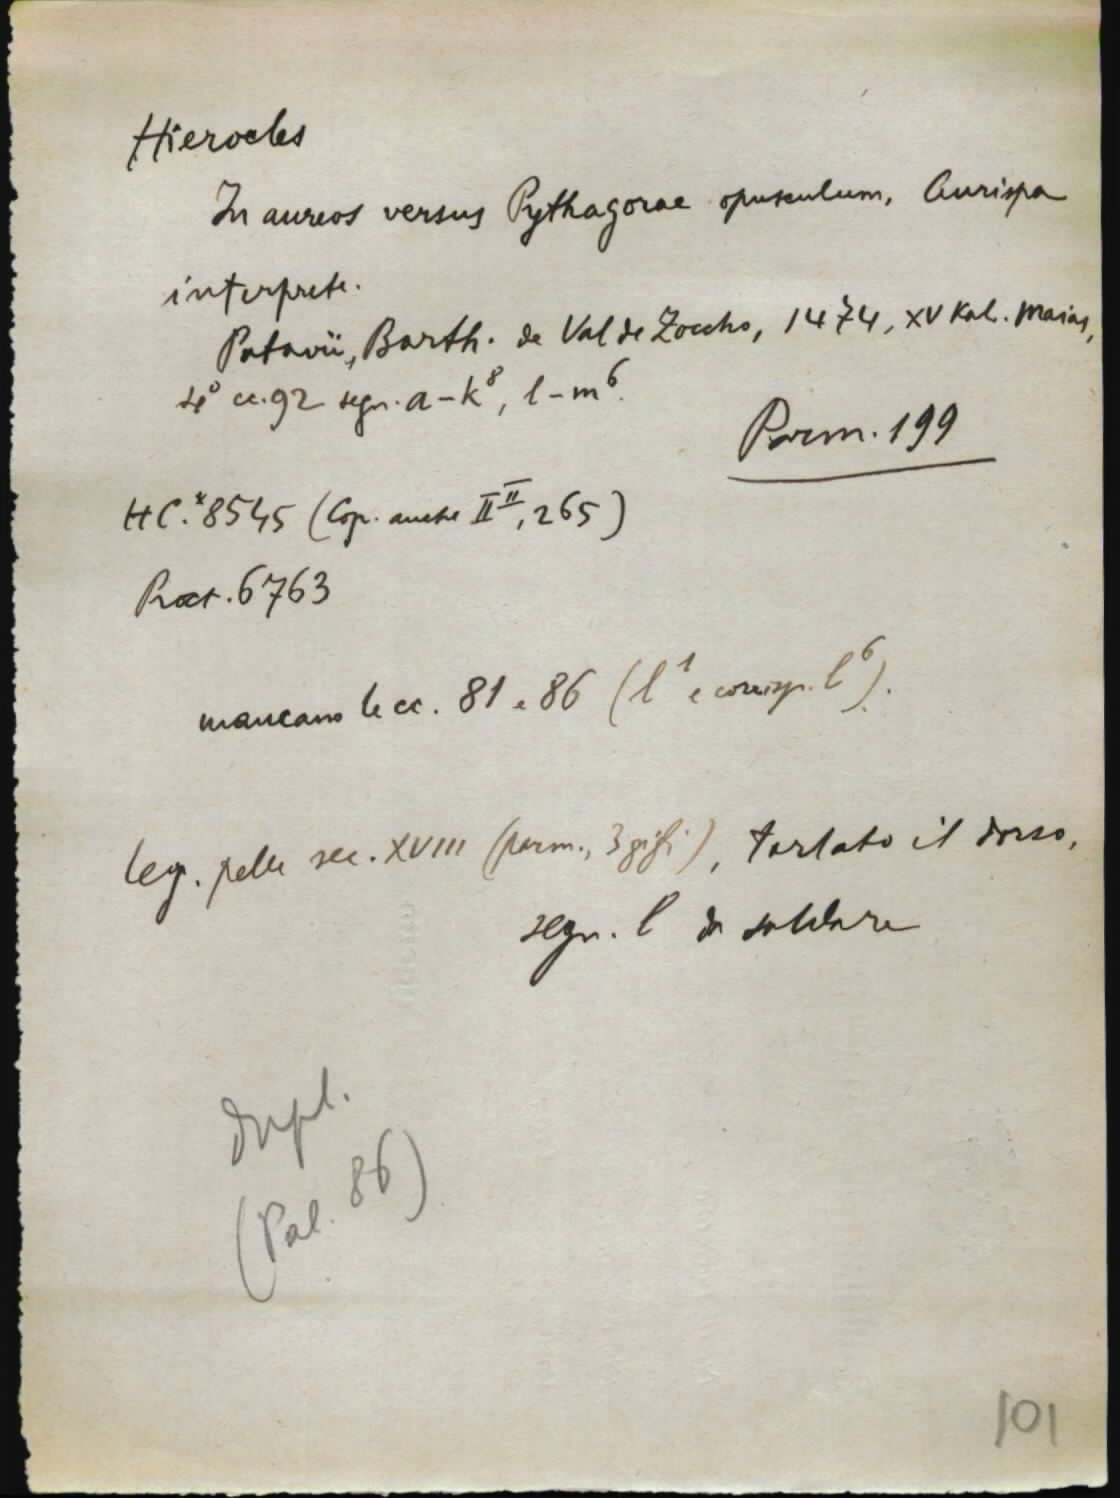 Hierocles
In aureos versus Pythagorae opusculum, Aurispa
interprete.
Patavii, Barth. de Val de Zoccho, 1474, XV Kal. Maias,
4° cc. 92 segn. a-k⁸, l-m⁶.
Parm. 199
HC.*8545 (Cop. anche II II, 265)
Proct. 6763
mancano le cc. 81 e 86 (l¹ e corrisp. l⁶).
leg. pelle sec. XVIII (parm., 3 gigli), tarlato il dorso,
segn. l da saldare
Dupl.
(Pal. 86)
101